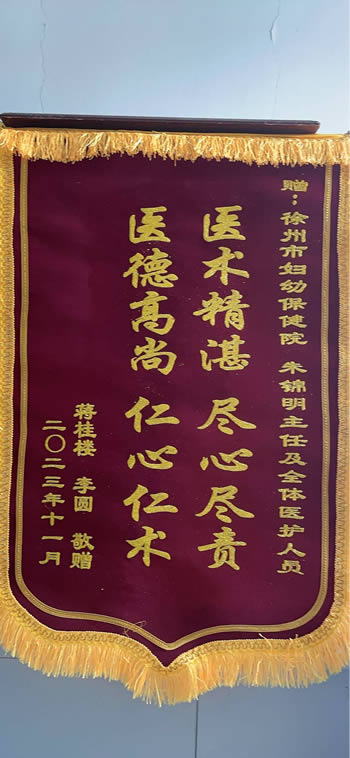 赠：徐州市妇幼保健院 朱锦明主任及全体医护人员
医术精湛 尽心尽责
医德高尚 仁心仁术
蒋桂楼 李圆 敬赠
二〇二三年十一月